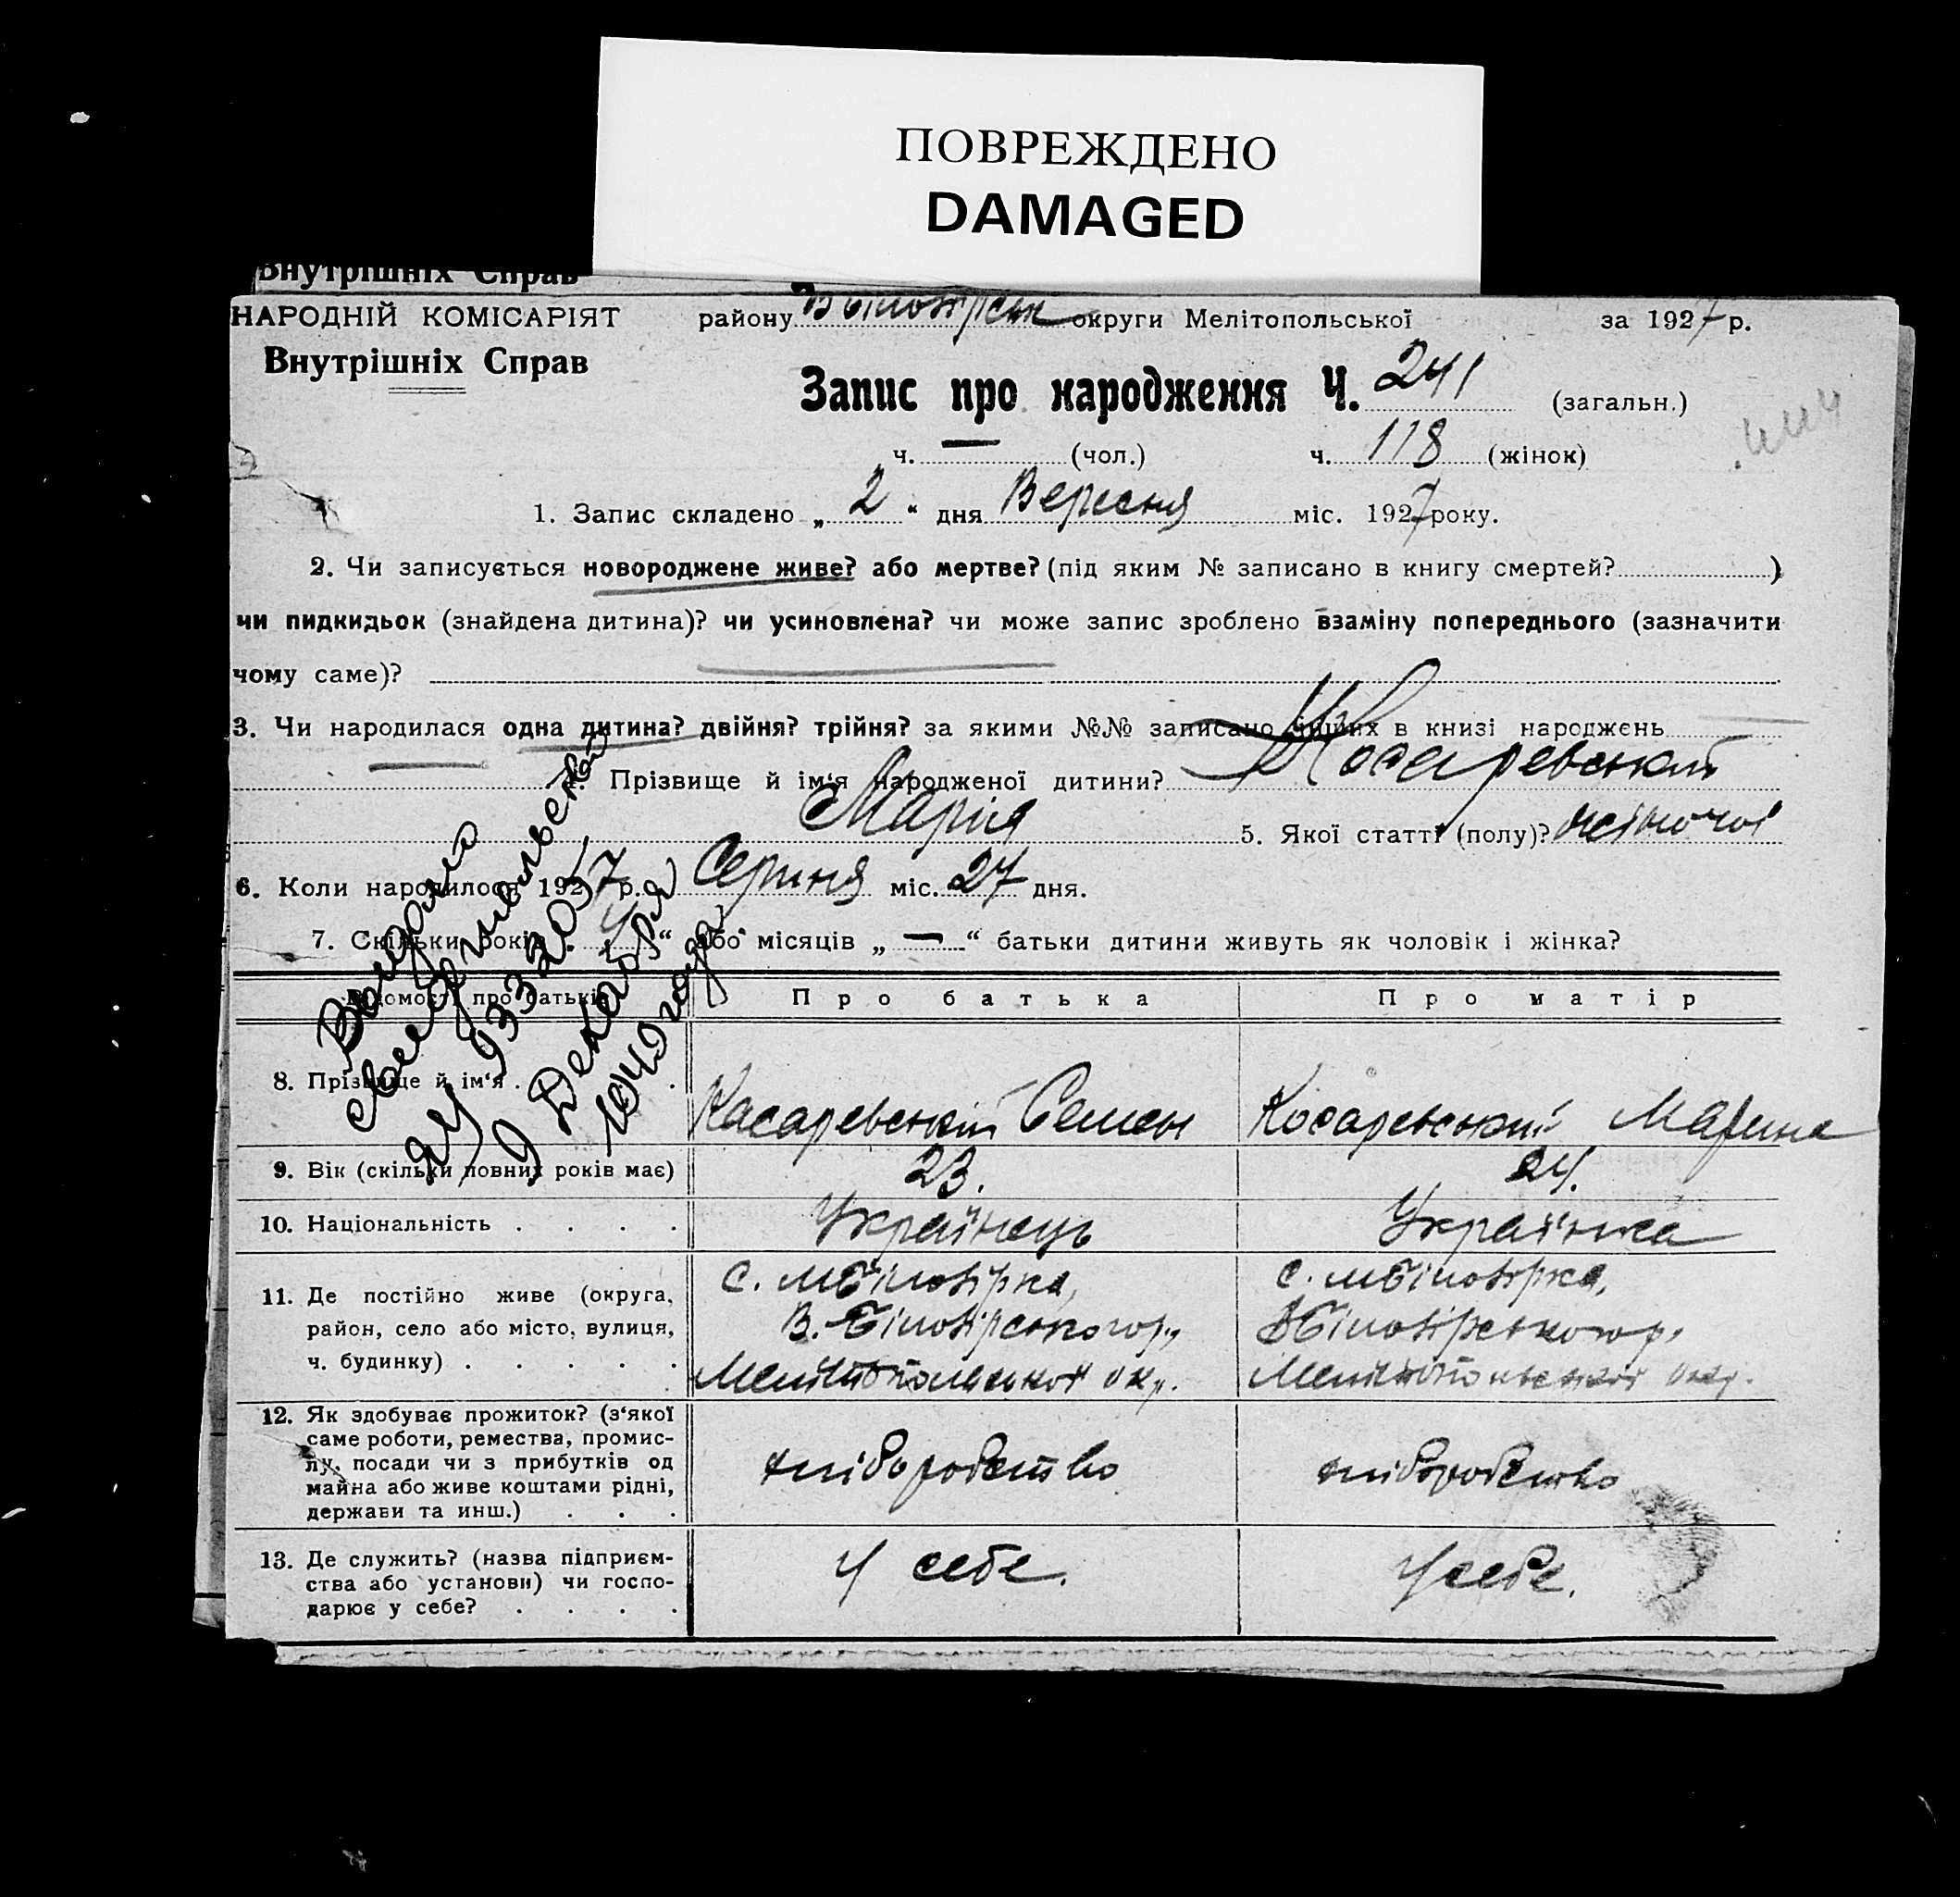 ПОВРЕЖДЕНО
DAMAGED
Внутрішніх Справ
НАРОДНІЙ КОМІСАРІЯТ району В Білозірськ округи Мелітопольської за 1927 р.
Внутрішніх Справ
Запис про народження Ч. 241 (загальн.)
ч. — (чол.) ч. 118 (жінок)
1. Запис складено „ 2 “ дня Вересня міс. 1927 року.
2. Чи записується новороджене живе? або мертве? (під яким № записано в книгу смертей? )
чи пидкидьок (знайдена дитина)? чи усиновлена? чи може запис зроблено взаміну попереднього (зазначити
чому саме)?
3. Чи народилася одна дитина? двійня? трійня? за якими №№ записано инших в книзі народжень
4. Прізвище й ім‘я народженої дитини? Косаревський
Марія 5. Якої статті (полу)? жіночої
6. Коли народилося 1927 р. Серпня міс. 27 дня.
7. Скільки років „ 4 “ або місяців „ — “ батьки дитини живуть як чоловік і жінка?
Выдано
свидетельство
ЯЧ 933205
9 Декабря
1949 года
Відомості про батьків Про батька Про матір
8. Прізвище й ім‘я . Касаревський Семен Косаревський Марина
9. Вік (скільки повних років має) 23. 24.
10. Національність . . . . Українець Українка
11. Де постійно живе (округа, район, село або місто, вулиця, ч. будинку) . . . . .
с. мБілозірка,
В.-Білозірського р.,
Мелітопольської ок.
с. мБілозірка,
ВБілозірського р.
Мелітопольської окр.
12. Як здобуває прожиток? (з‘якої
саме роботи, ремества, промис-
лу, посади чи з прибутків од
майна або живе коштами рідні,
держави та инш.) . . .
хліборобство хліборобство
13. Де служить? (назва підприєм-
ства або установи) чи госпо-
дарює у себе? . . . .
У себе. У себе.